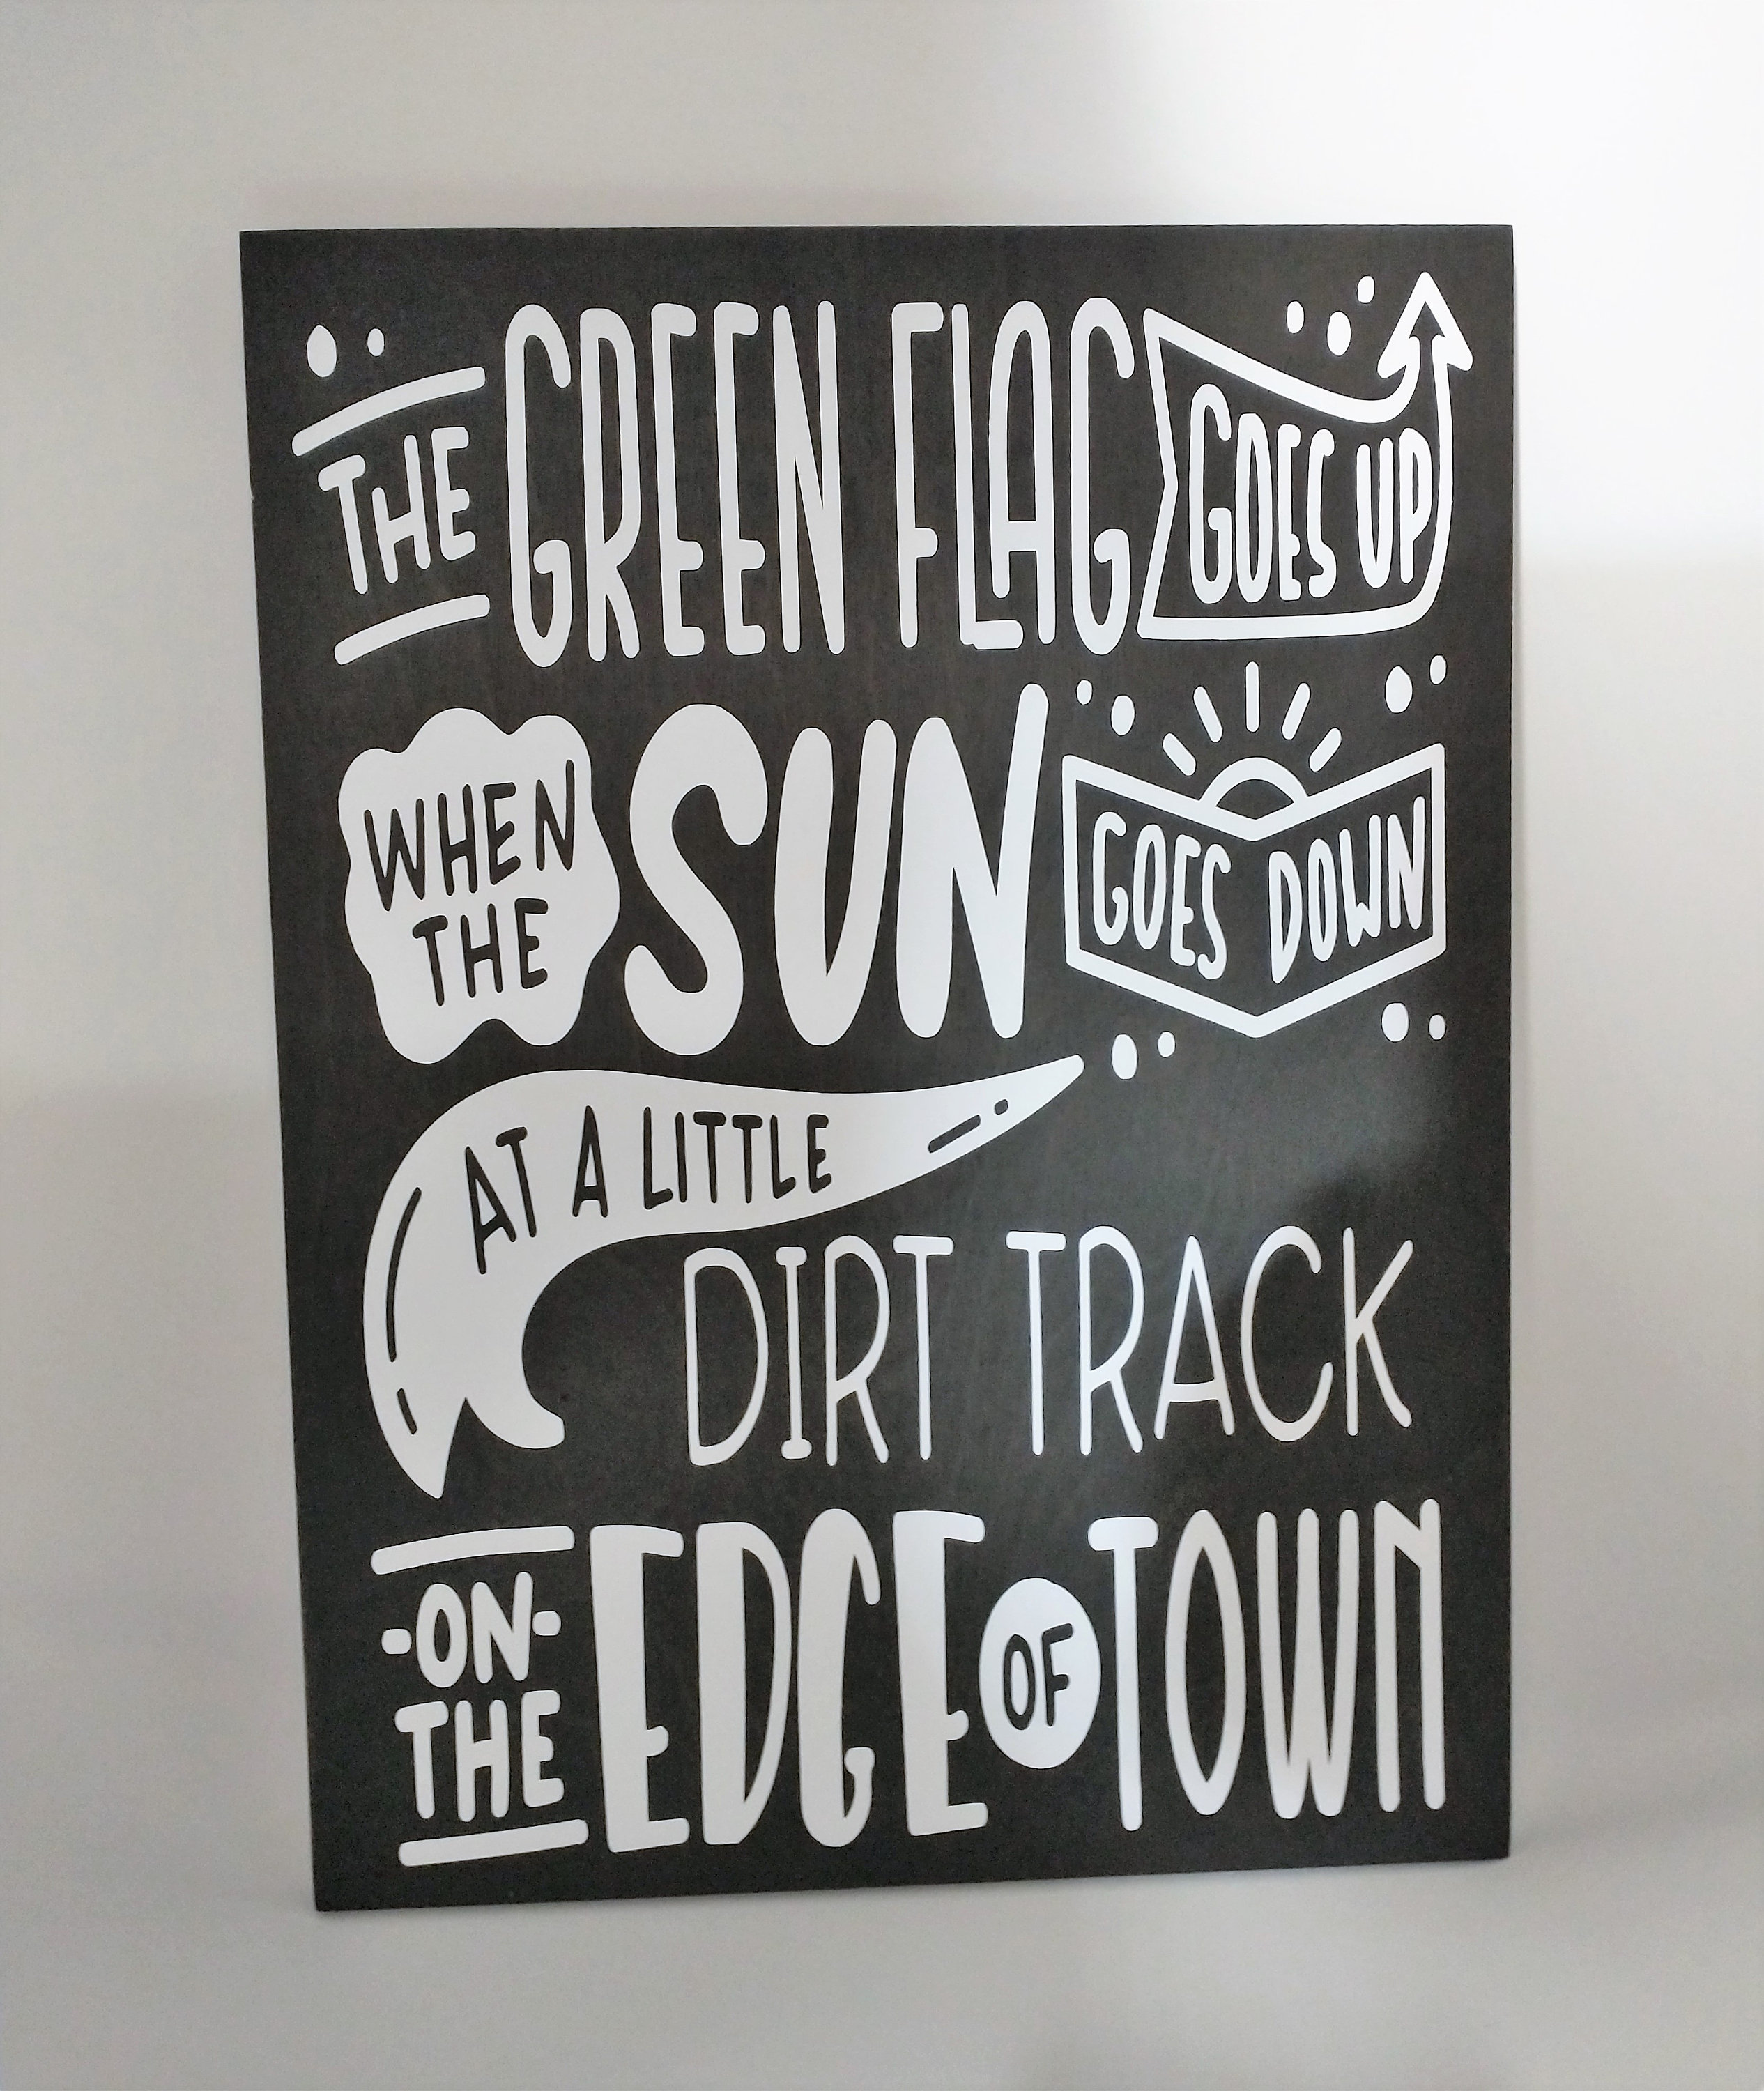 THE GREEN FLAG GOES UP
WHEN
THE SUN GOES DOWN
AT A LITTLE
DIRT TRACK
ON
THE EDGE OF TOWN